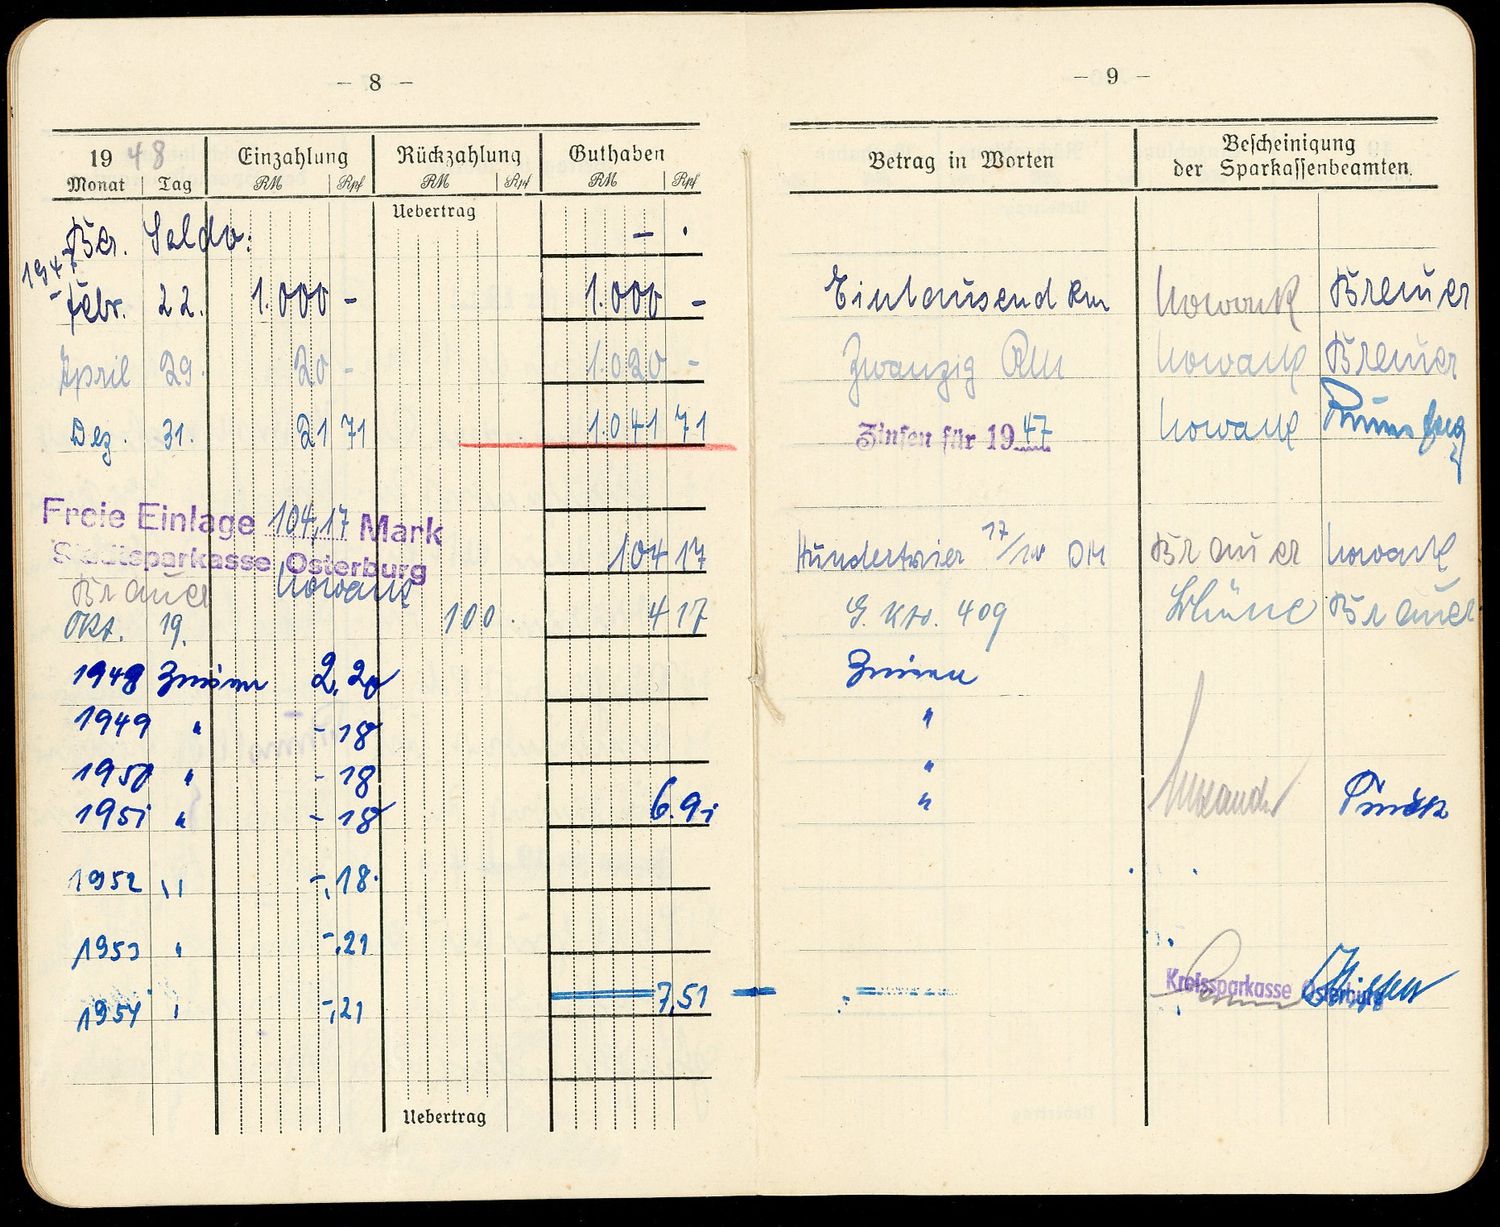 – 8 –
1948 Einzahlung Rückzahlung Guthaben
Monat Tag RM Rpf RM Rpf RM Rpf
Uebertrag
Saldo: – .
1947
Febr. 22. 1.000 – 1.000 –
April 29. 20 – 1.020 –
Dez. 31. 21 71 1.041 71
Freie Einlage 104,17 Mark
Stadtsparkasse Osterburg 104 17
Brauer Nowack
Okt. 19. 100 4 17
1948 Zinsen 2,20
1949 " – 18
1950 " – 18
1951 " – 18 6.91
1952 " –,18
1953 " –,21
1954 " –,21 7,51
Uebertrag
– 9 –
Betrag in Worten Bescheinigung
der Sparkassenbeamten.
Eintausend Rm Nowack Brauer
Zwanzig RM Nowack Brauer
Zinsen für 1947 Nowack
Hundertvier 17/100 DM Brauer Nowack
G. Kto. 409 Brauer
Zinsen
"
"
"
Kreissparkasse Osterburg